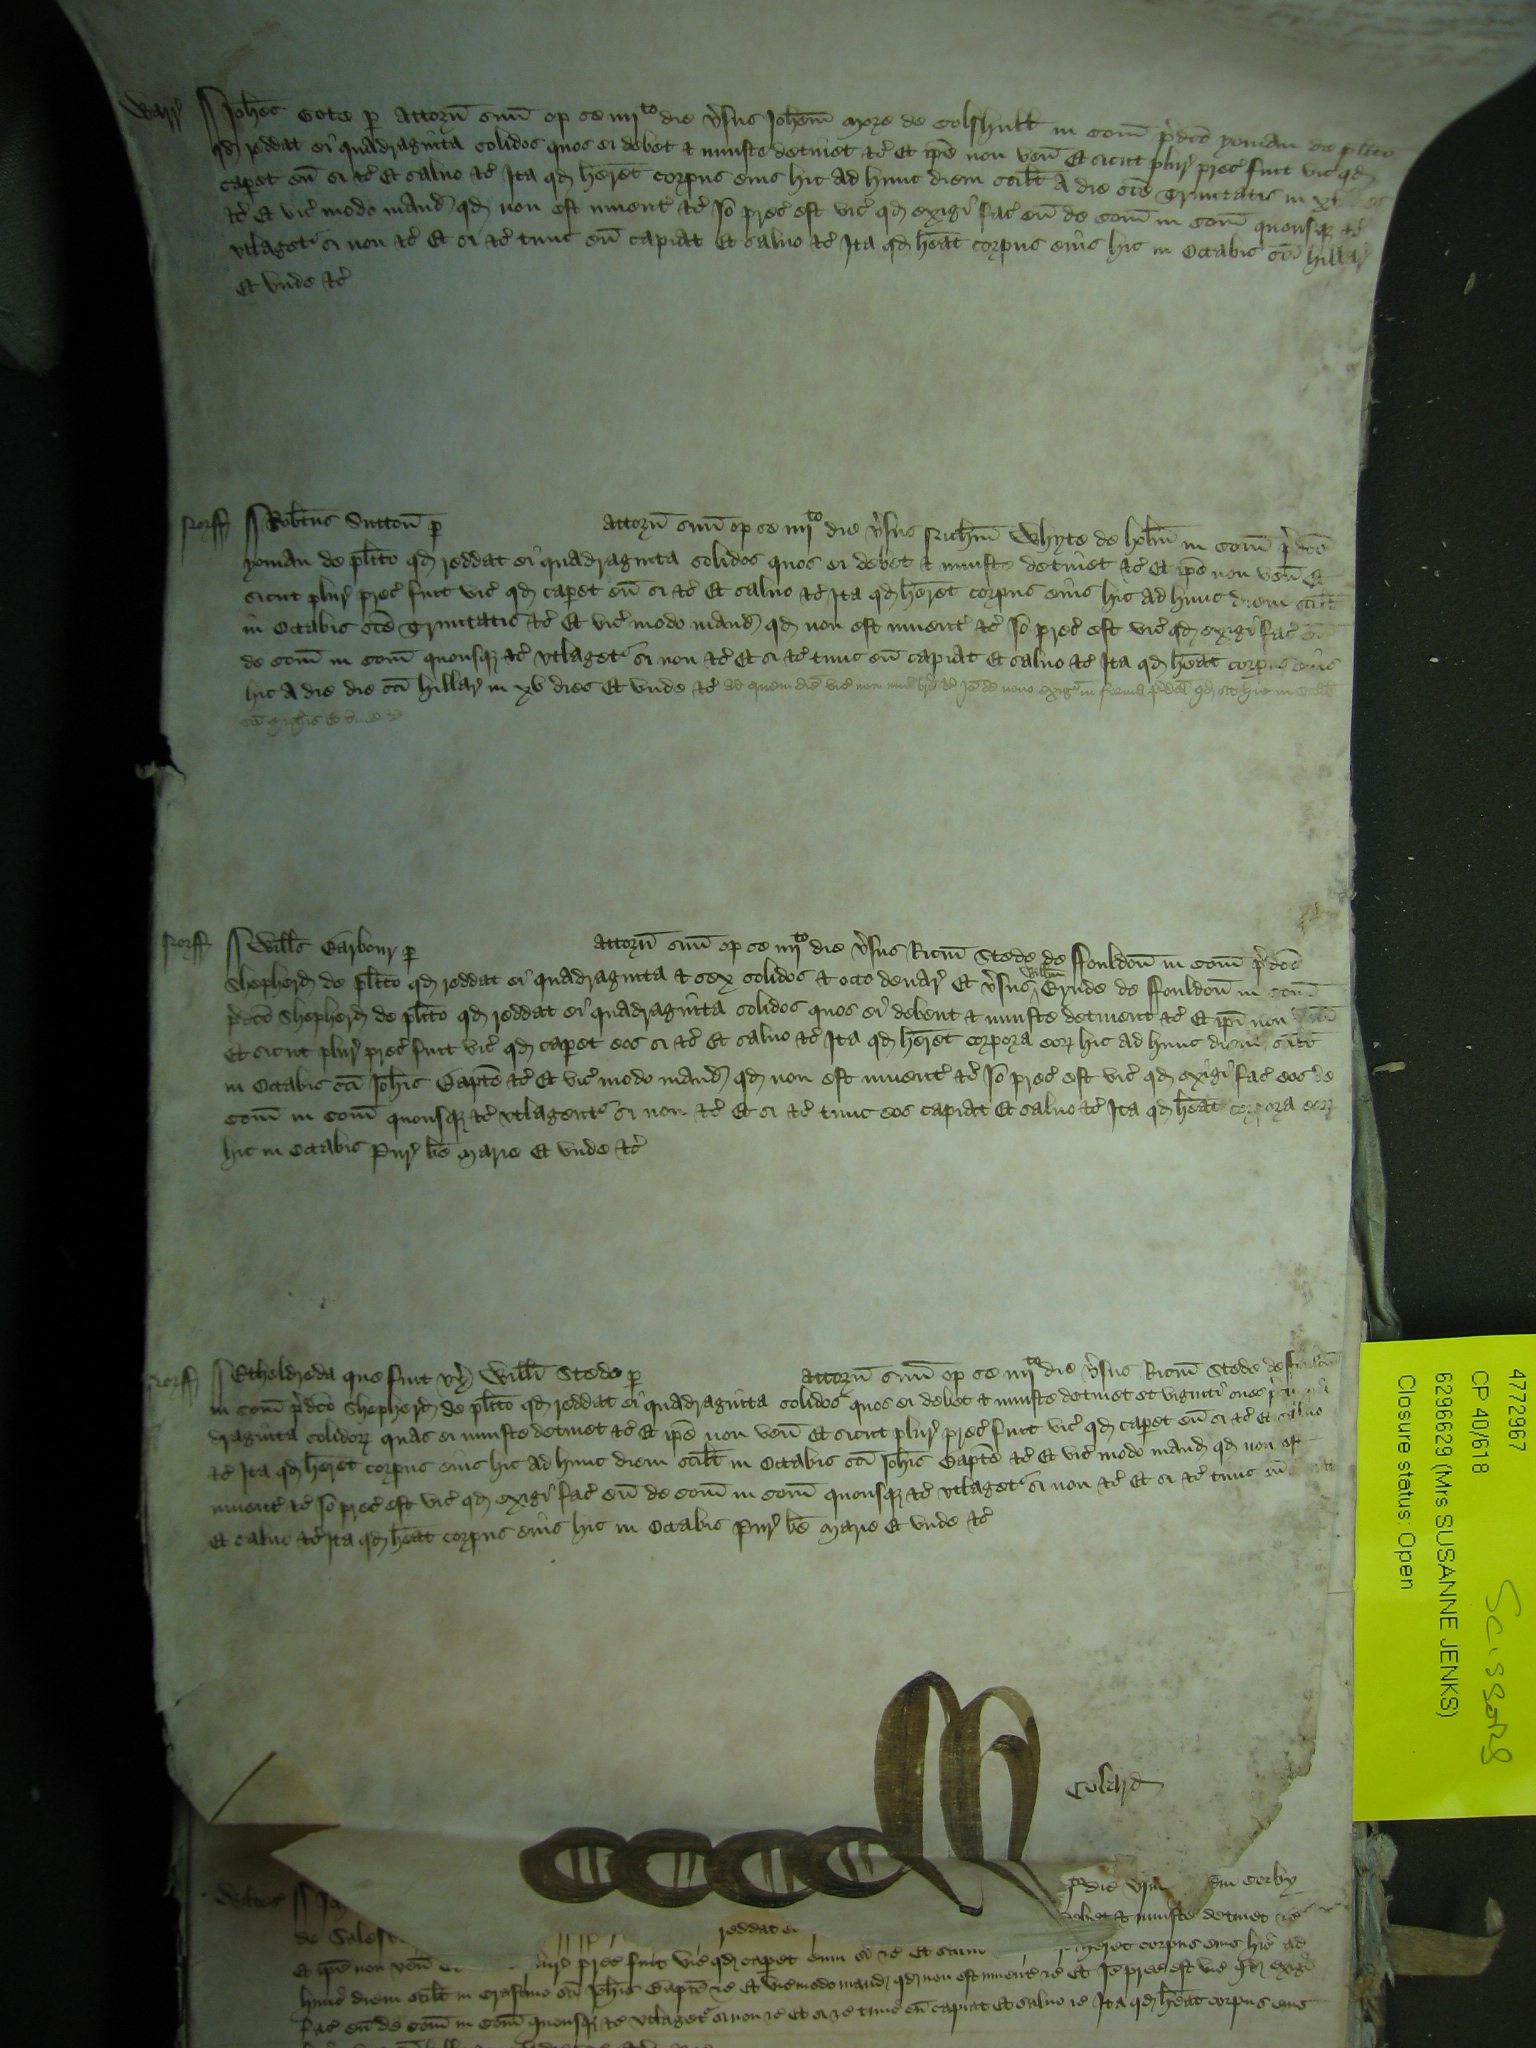 Warr Joh̄es Cote p Attorn̄ suū op se iiijto die v̄sus Joh̄em More de Colshull in Com̄ p̄dc̄o yoman de pl̄ito
qđ reddat ei quadraginta solidos quos ei debet & iniuste detinet &c̄ Et ip̄e non ven̄ Et sicut plur̄ prec̄ fuit vic̄ qđ
cap̄et eū si &c̄ Et saluo &c̄ Ita qđ h̄eret corpus eius hic ad hunc diem scil̄t A die sc̄e Trinitatis in xv dies
&c̄ Et vic̄ modo mand̄ qđ non est inuent̄ &c̄ Jo prec̄ est vic̄ qđ exigi fac̄ eū de Com̄ in Com̄ quousq &c̄
vtlaget si non &c̄ Et si &c̄ tunc eū capiat Et saluo &c̄ Ita qđ h̄eat corpus eius hic in Octabis sc̄i hillar̄
Et vnde &c̄
Norff Rob̄tus Sutton̄ p Attorn̄ suū op se iiijto die v̄sus Ric̄hm̄ Whyte de in Com̄ p̄dc̄o
yoman de pl̄ito qđ reddat ei quadraginta solidos quos ei debet & iniuste detinet &c̄ Et ip̄e non ven̄ Et
sicut plur̄ prec̄ fuit vic̄ qđ cap̄et eū si &c̄ Et saluo &c̄ Ita qđ h̄eret corpus eius hic ad hunc diem scil̄t
in Octabis sc̄e Trinitatis &c̄ Et vic̄ modo mand̄ qđ non est inuent̄ &c̄ Jo prec̄ est vic̄ qđ exigi fac̄ eū
de Com̄ in Com̄ quousq &c̄ vtlaget si non &c̄ Et si &c̄ tunc eū capiat Et saluo &c̄ Ita qđ h̄eat corpus eius
hic A die die sc̄i hillar̄ in xv dies Et vnde &c̄ ad quem diē vic̄ non mis̄ br̄e &c̄ Jō de nouo exigr̄ in forma p̄dc̄a qđ sit hic in Octab̄
sc̄i Mich̄is Et vnde &c̄
Norff Will̄s Barbour p Attorn̄ suū op se iiijto die v̄sus Ric̄m Stede de ffouldon̄ in Com̄ p̄dc̄o
Shepherd̄ de pl̄ito qđ reddat ei quadraginta & sex solidos & octo denar̄ Et v̄sus Will̄m Grude de ffouldon̄ in Com̄
p̄dc̄o Shepherd̄ de pl̄ito qđ reddat ei quadraginta solidos quos ei debent & iniuste detinent &c̄ Et ip̄i non ven̄
Et sicut plur̄ prec̄ fuit vic̄ qđ cap̄et eos si &c̄ Et saluo &c̄ Ita qđ h̄eret corpora eor hic ad hunc diem scil̄t
in Octabis sc̄i Joh̄is Bapt̄e &c̄ Et vic̄ modo mand̄ qđ non est inuent̄ &c̄ Jo prec̄ est vic̄ qđ exigi fac̄ eos de
Com̄ in Com̄ quousq &c̄ vtlagent si non &c̄ Et si &c̄ tunc eos capiat Et saluo &c̄ Ita qđ h̄eat corpora eor
hic in Octabis Pur̄ b̄e Marie Et vnde &c̄
Norff Etheldreda que fuit vx̄ Will̄i Stede p Attorn̄ suū op se iiijto die v̄sus Ric̄m Stede de ffouldon̄
in Com̄ p̄dc̄o Shepherd̄ de pl̄ito qđ reddat ei quadraginta solidos quos ei debet & iniuste detinet et viginti oues
draginta solidor quas ei iniuste detinet &c̄ Et ip̄e non ven̄ Et sicut plur̄ prec̄ fuit vic̄ qđ cap̄et eū si &c̄ Et saluo
&c̄ Ita qđ h̄eret corpus eius hic ad hunc diem scil̄t in Octabis sc̄i Joh̄is Bapt̄e &c̄ Et vic̄ modo mand̄ qđ non est
inuent̄ &c̄ Jo prec̄ est vic̄ qđ exigi fac̄ eū de Com̄ in Com̄ quousq &c̄ vtlaget si non &c̄ Et si &c̄ tunc eū
Et saluo &c̄ Ita qđ h̄eat corpus eius hic in Octabis Pur̄ b̄e Marie Et vnde &c̄
Colard
die v̄sus Corby
de reddat ei debet & iniuste detinet &c̄
Et ip̄e non ven̄ plur̄ prec̄ fuit vic̄ qđ caperet eum si &c̄ Et h̄eret corpus eius hic ad
hunc diem scil̄t in Crastino sc̄i Joh̄is Bapt̄e &c̄ Et vic̄ modo mand̄ qđ non est inuent̄ &c̄ Et Jō prec̄ est vic̄ qđ exigi
fac̄ eū de Com̄ in Com̄ quousq &c̄ vtlaget si non &c̄ Et si &c̄ tunc eū capiat Et saluo &c̄ Ita qđ h̄eat corpus eius
4772967
CP 40/618
6296629 (Mrs SUSANNE JENKS)
Closure status: Open
Scissors